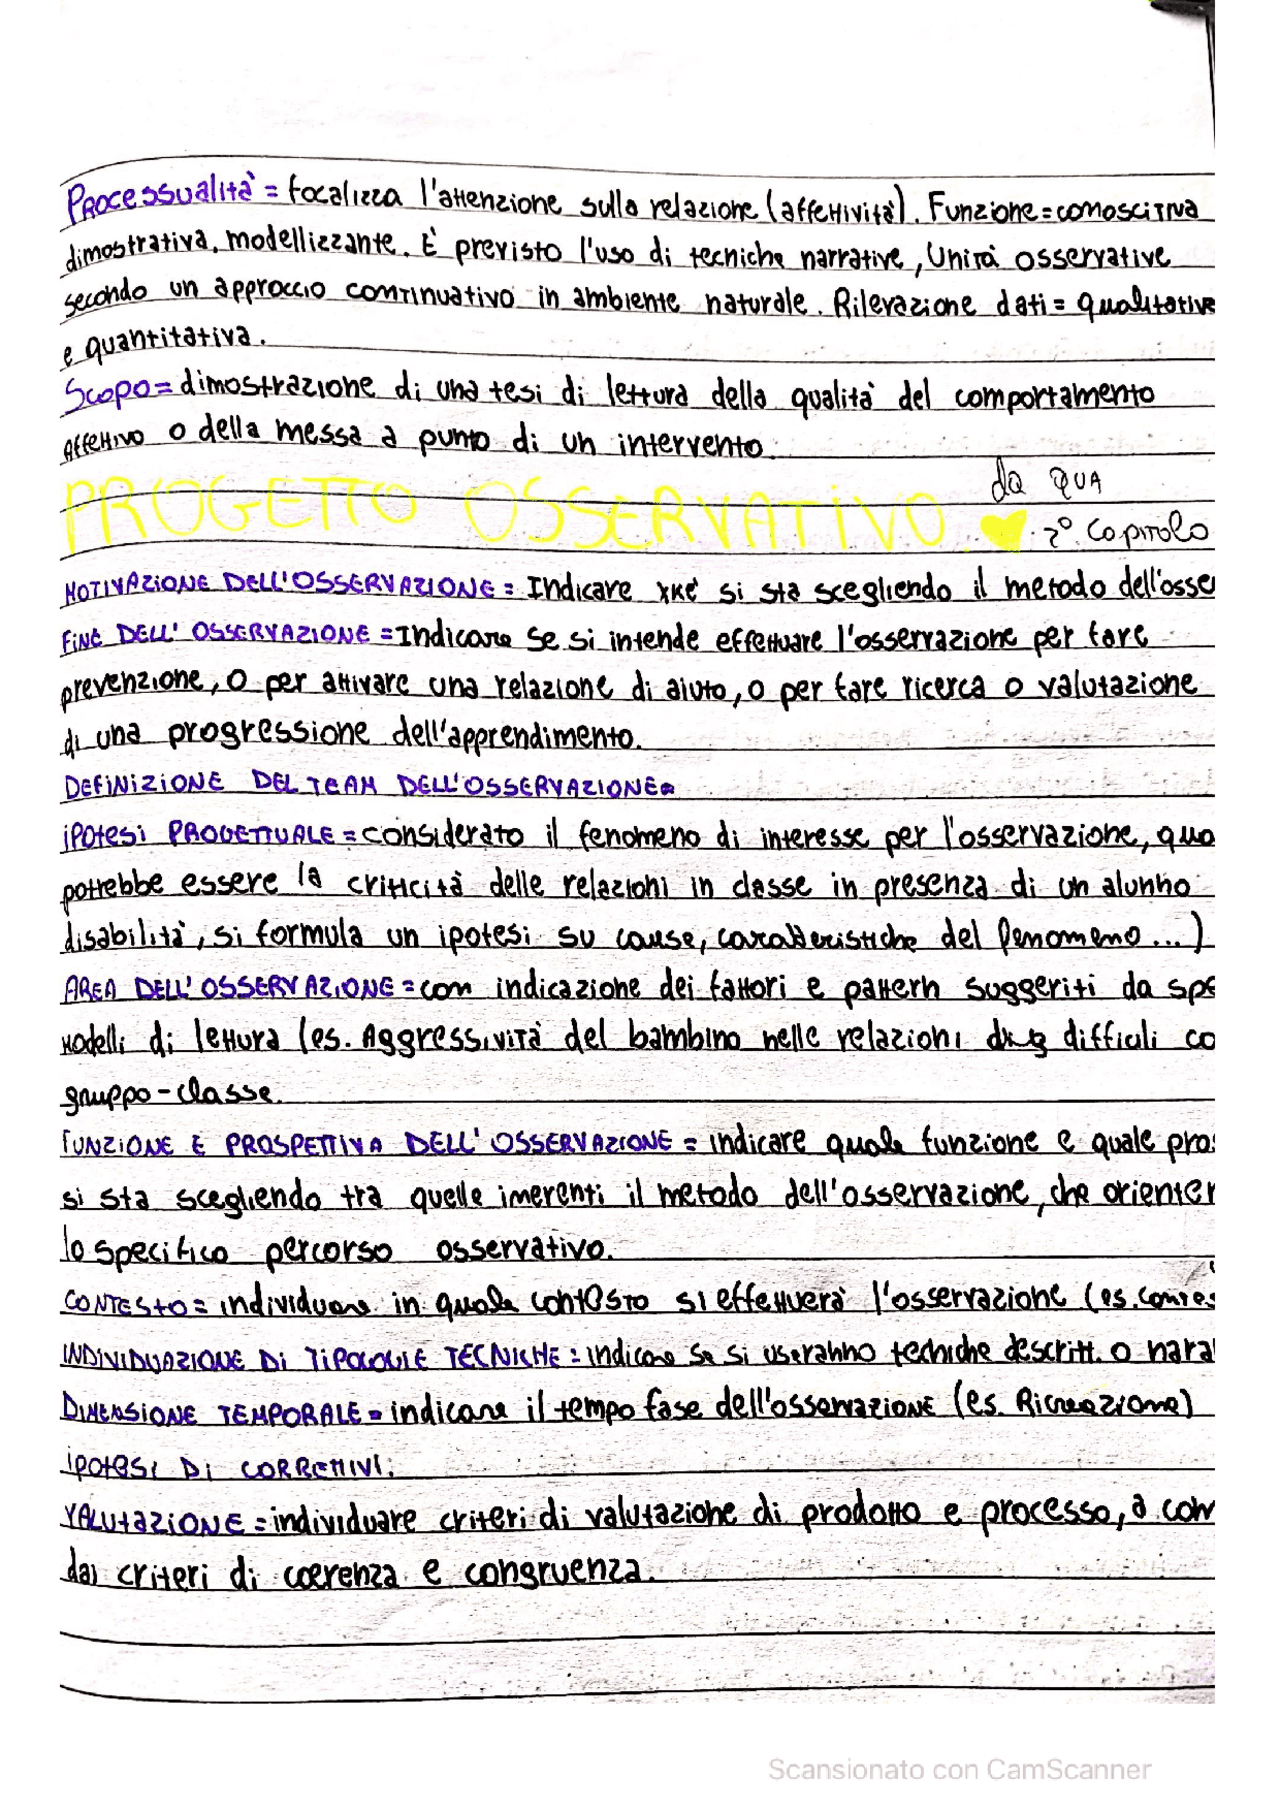 Processualità = focalizza l'attenzione sulla relazione (affettività). Funzione = conoscitiva
dimostrativa, modellizzante. È previsto l'uso di tecniche narrative, Unità osservative
secondo un approccio continuativo in ambiente naturale. Rilevazione dati = qualitative
e quantitativa.
Scopo = dimostrazione di una tesi di lettura della qualità del comportamento
affettivo o della messa a punto di un intervento.
PROGETTO OSSERVATIVO
da QUA
2° Capitolo
MOTIVAZIONE DELL'OSSERVAZIONE = Indicare xké si sta scegliendo il metodo dell'osse
FINE DELL'OSSERVAZIONE = Indicare se si intende effettuare l'osservazione per fare
prevenzione, o per attivare una relazione di aiuto, o per fare ricerca o valutazione
di una progressione dell'apprendimento.
DEFINIZIONE DEL TEAM DELL'OSSERVAZIONE
IPOTESI PROGETTUALE = considerato il fenomeno di interesse per l'osservazione, qua
potrebbe essere la criticità delle relazioni in classe in presenza di un alunno
disabilità, si formula un ipotesi su cause, caratteristiche del fenomeno...)
AREA DELL'OSSERVAZIONE = con indicazione dei fattori e pattern suggeriti da spe
modelli di lettura (es. Aggressività del bambino nelle relazioni difficili co
gruppo-classe.
FUNZIONE E PROSPETTIVA DELL'OSSERVAZIONE = indicare quale funzione e quale pros
si sta scegliendo tra quelle imerenti il metodo dell'osservazione, che orienter
lo specifico percorso osservativo.
CONTESTO = individuare in quale contesto si effettuerà l'osservazione (es. contes
INDIVIDUAZIONE DI TIPOLOGIE TECNICHE = indicare se si useranno tecniche descritt. o narat
DIMENSIONE TEMPORALE = indicare il tempo fase dell'osservazione (es. Ricreazione)
IPOTESI DI CORRETTIVI.
VALUTAZIONE = individuare criteri di valutazione di prodotto e processo, a com
dai criteri di coerenza e congruenza.
Scansionato con CamScanner